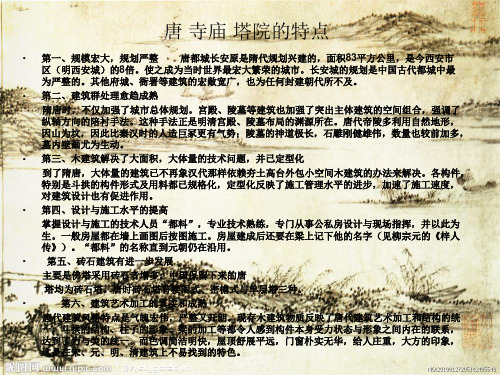 唐 寺庙 塔院的特点
• 第一、规模宏大，规划严整 唐都城长安原是隋代规划兴建的，面积83平方公里，是今西安市
区（明西安城）的8倍。使之成为当时世界最宏大繁荣的城市。长安城的规划是中国古代都城中最
为严整的。其他府城、衙署等建筑的宏敞宽广，也为任何封建朝代所不及。
• 第二、建筑群处理愈趋成熟
隋唐时，不仅加强了城市总体规划。宫殿、陵墓等建筑也加强了突出主体建筑的空间组合，强调了
纵轴方向的陪衬手法。这种手法正是明清宫殿、陵墓布局的渊源所在。唐代帝陵多利用自然地形，
因山为坟，因此比秦汉时的人造巨冢更有气势；陵墓的神道极长，石雕刚健雄伟，数量也较前加多，
墓内壁画尤为生动。
• 第三、木建筑解决了大面积，大体量的技术问题，并已定型化
到了隋唐，大体量的建筑已不再象汉代那样依赖夯土高台外包小空间木建筑的办法来解决。各构件
特别是斗拱的构件形式及用料都已规格化，定型化反映了施工管理水平的进步，加速了施工速度，
对建筑设计也有促进作用。
• 第四、设计与施工水平的提高
掌握设计与施工的技术人员“都料”，专业技术熟练，专门从事公私房设计与现场指挥，并以此为
生。一般房屋都在墙上画图后按图施工。房屋建成后还要在梁上记下他的名字（见柳宗元的《梓人
传》）。“都料”的名称直到元朝仍在沿用。
• 第五、砖石建筑有进一步发展
主要是佛塔采用砖石者增多，中国保留下来的唐
塔均为砖石塔。唐时砖石塔有楼阁式、密檐式与单层塔三种。
• 第六、建筑艺术加工的真实和成熟
唐代建筑风格特点是气魄宏伟，严整又开朗。现存木建筑物质反映了唐代建筑艺术加工和结构的统
一，斗拱的结构、柱子的形象、梁的加工等都令人感到构件本身受力状态与形象之间内在的联系，
达到了力与美的统一。而色调简洁明快，屋顶舒展平远，门窗朴实无华，给人庄重，大方的印象，
这是在宋、元、明、清建筑上不易找到的特色。